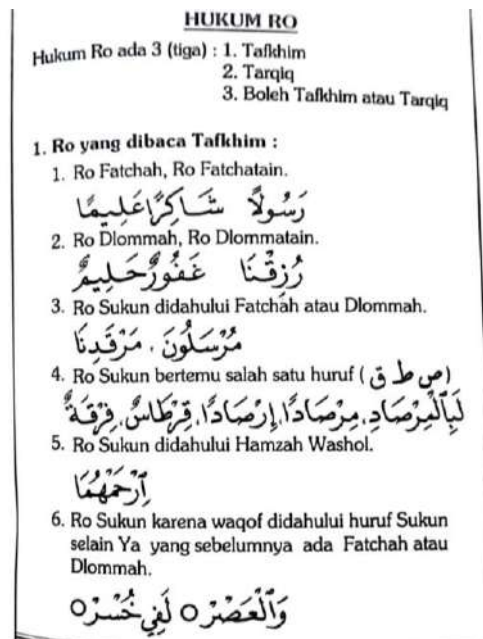 HUKUM RO
Hukum Ro ada 3 (tiga) : 1. Tafkhim
2. Tarqiq
3. Boleh Tafkhim atau Tarqiq
1. Ro yang dibaca Tafkhim :
1. Ro Fatchah, Ro Fatchatain.
رَسُولاً شَاكِرًاعَلِيمًا
2. Ro Dlommah, Ro Dlommatain.
رُزِقْنَا غَفُورٌحَلِيمٌ
3. Ro Sukun didahului Fatchah atau Dlommah.
مُرْسَلُونَ . مَرْقَدِنَا
4. Ro Sukun bertemu salah satu huruf ( ص ط ق )
لَبِالْمِرْصَادِ. مِرْصَادًا. إِرْصَادًا. قِرْطَاسٌ. فِرْقَةٌ
5. Ro Sukun didahului Hamzah Washol.
اِرْحَمْهُمَا
6. Ro Sukun karena waqof didahului huruf Sukun
selain Ya yang sebelumnya ada Fatchah atau
Dlommah.
وَالْعَصْرْ ○ لَفِيْ خُسْرْ ○